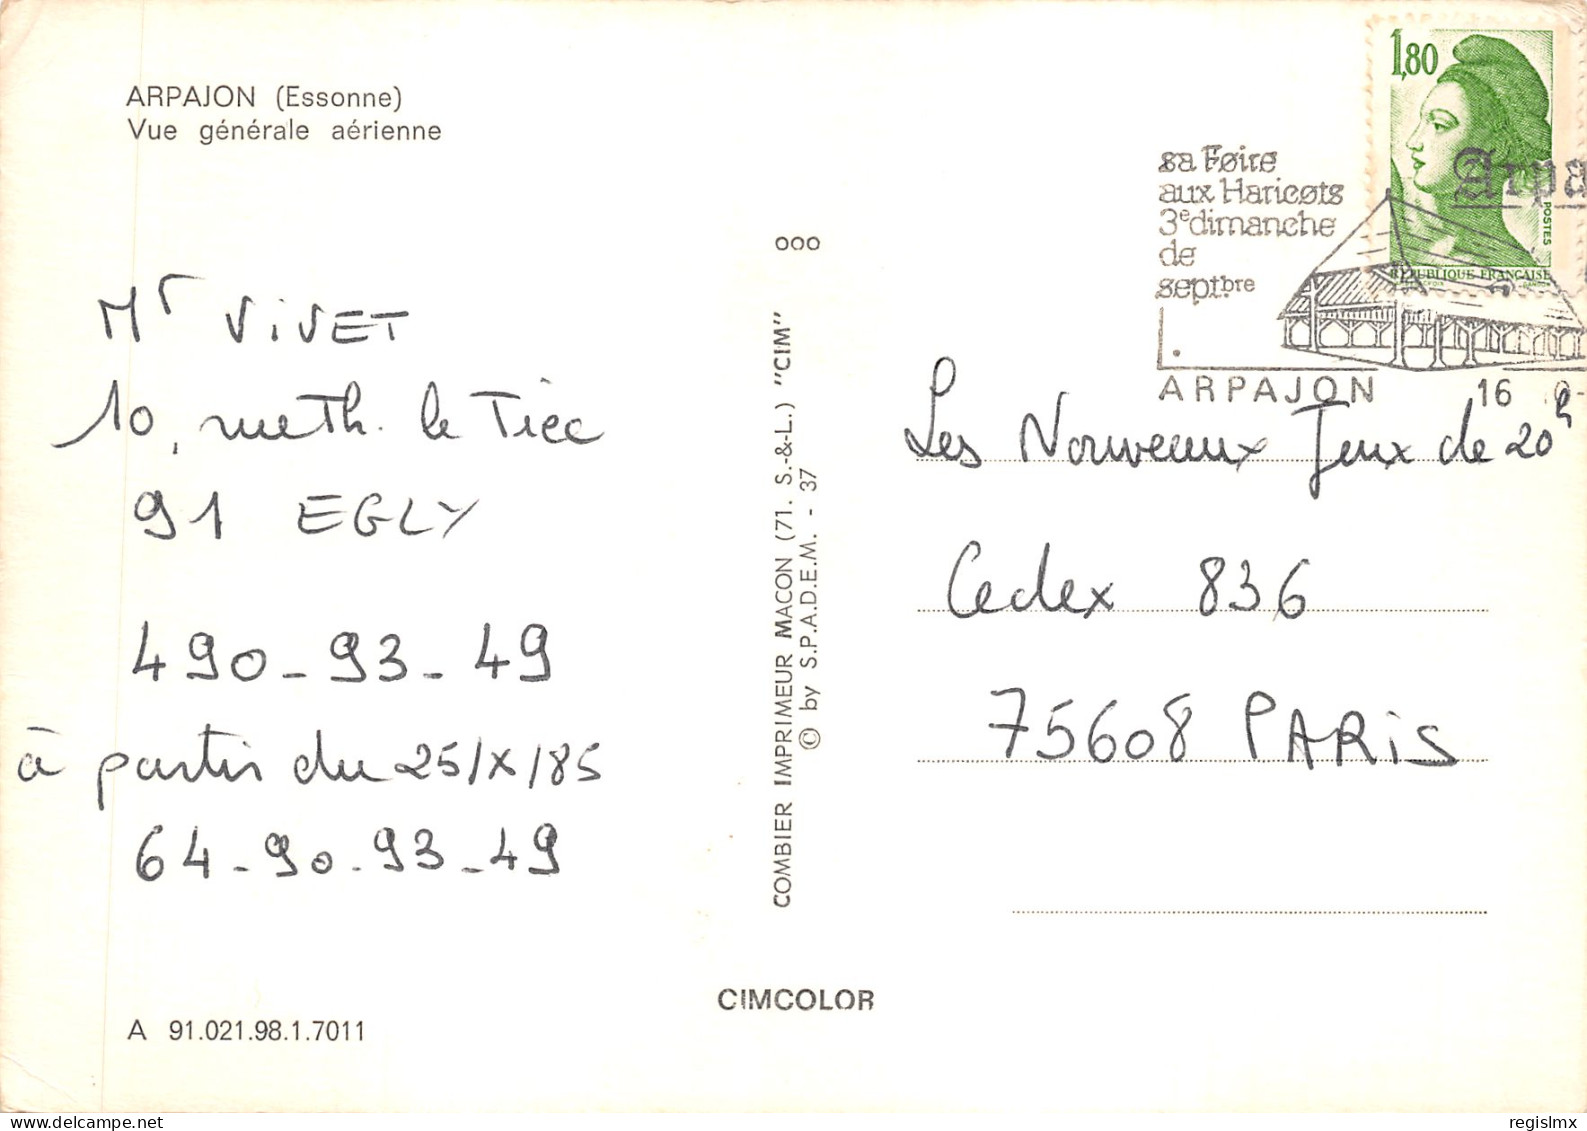 ARPAJON (Essonne)
Vue générale aérienne
Mr ViVET
10, meth. le Tiec
91 EGLY
490-93-49
à partir du 25/X/85
64-90-93-49
A 91.021.98.1.7011
ooo
COMBIER IMPRIMEUR MACON (71. S.-&-L.) "CIM"
© by S.P.A.D.E.M. - 37
CIMCOLOR
1,80
POSTES
RÉPUBLIQUE FRANÇAISE
Arpa
sa Foire
aux Haricots
3e dimanche
de
septbre
ARPAJON 16
Les Nouveaux Jeux de 20h
Cedex 836
75608 PARiS
regislmx